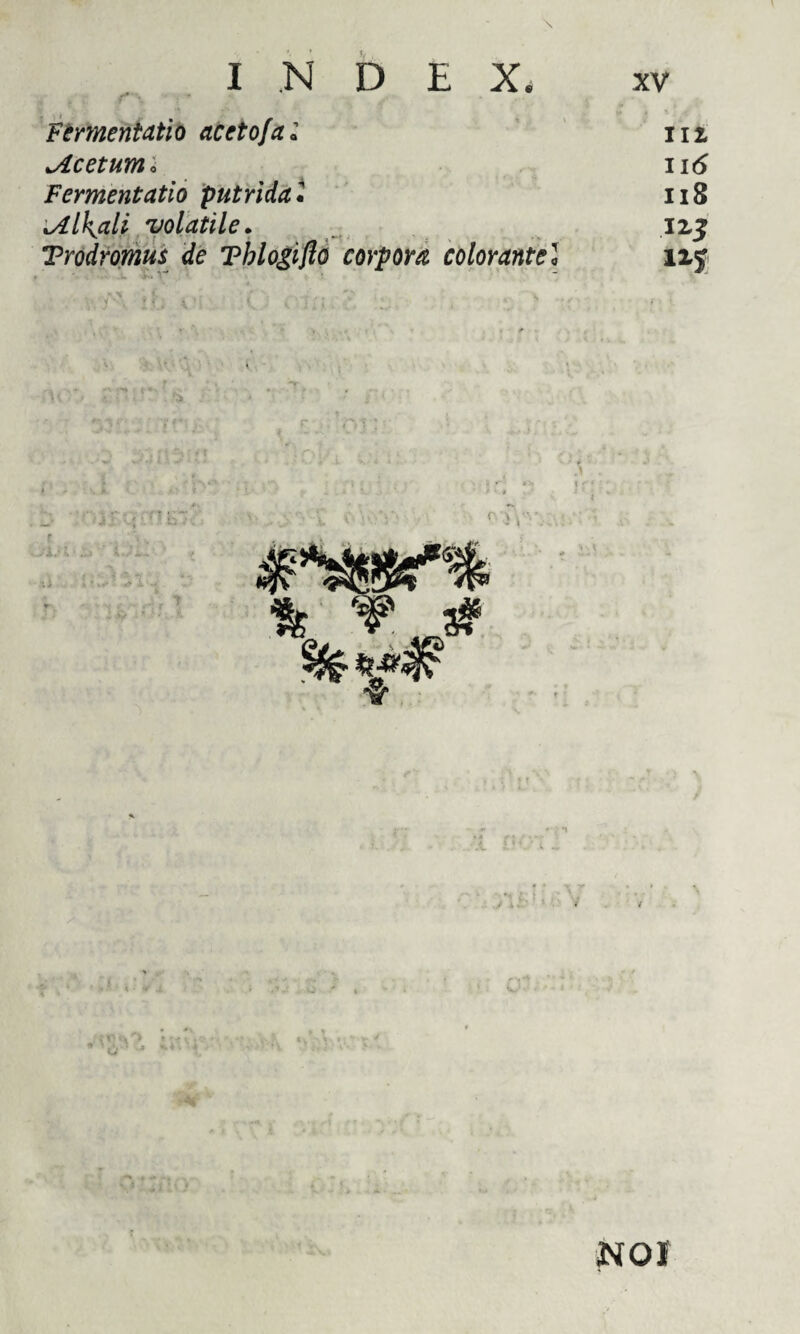 INDEX. XV
Fermentatio acetoſa. 112
Acetum. 116
Fermentatio putrida. 118
Alkali volatile. 123
Prodromus de Phlogiſto corpora colorante. 125
NOI